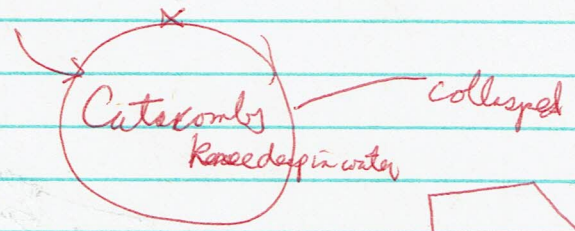 Catacombs
knee deep in water
collasped